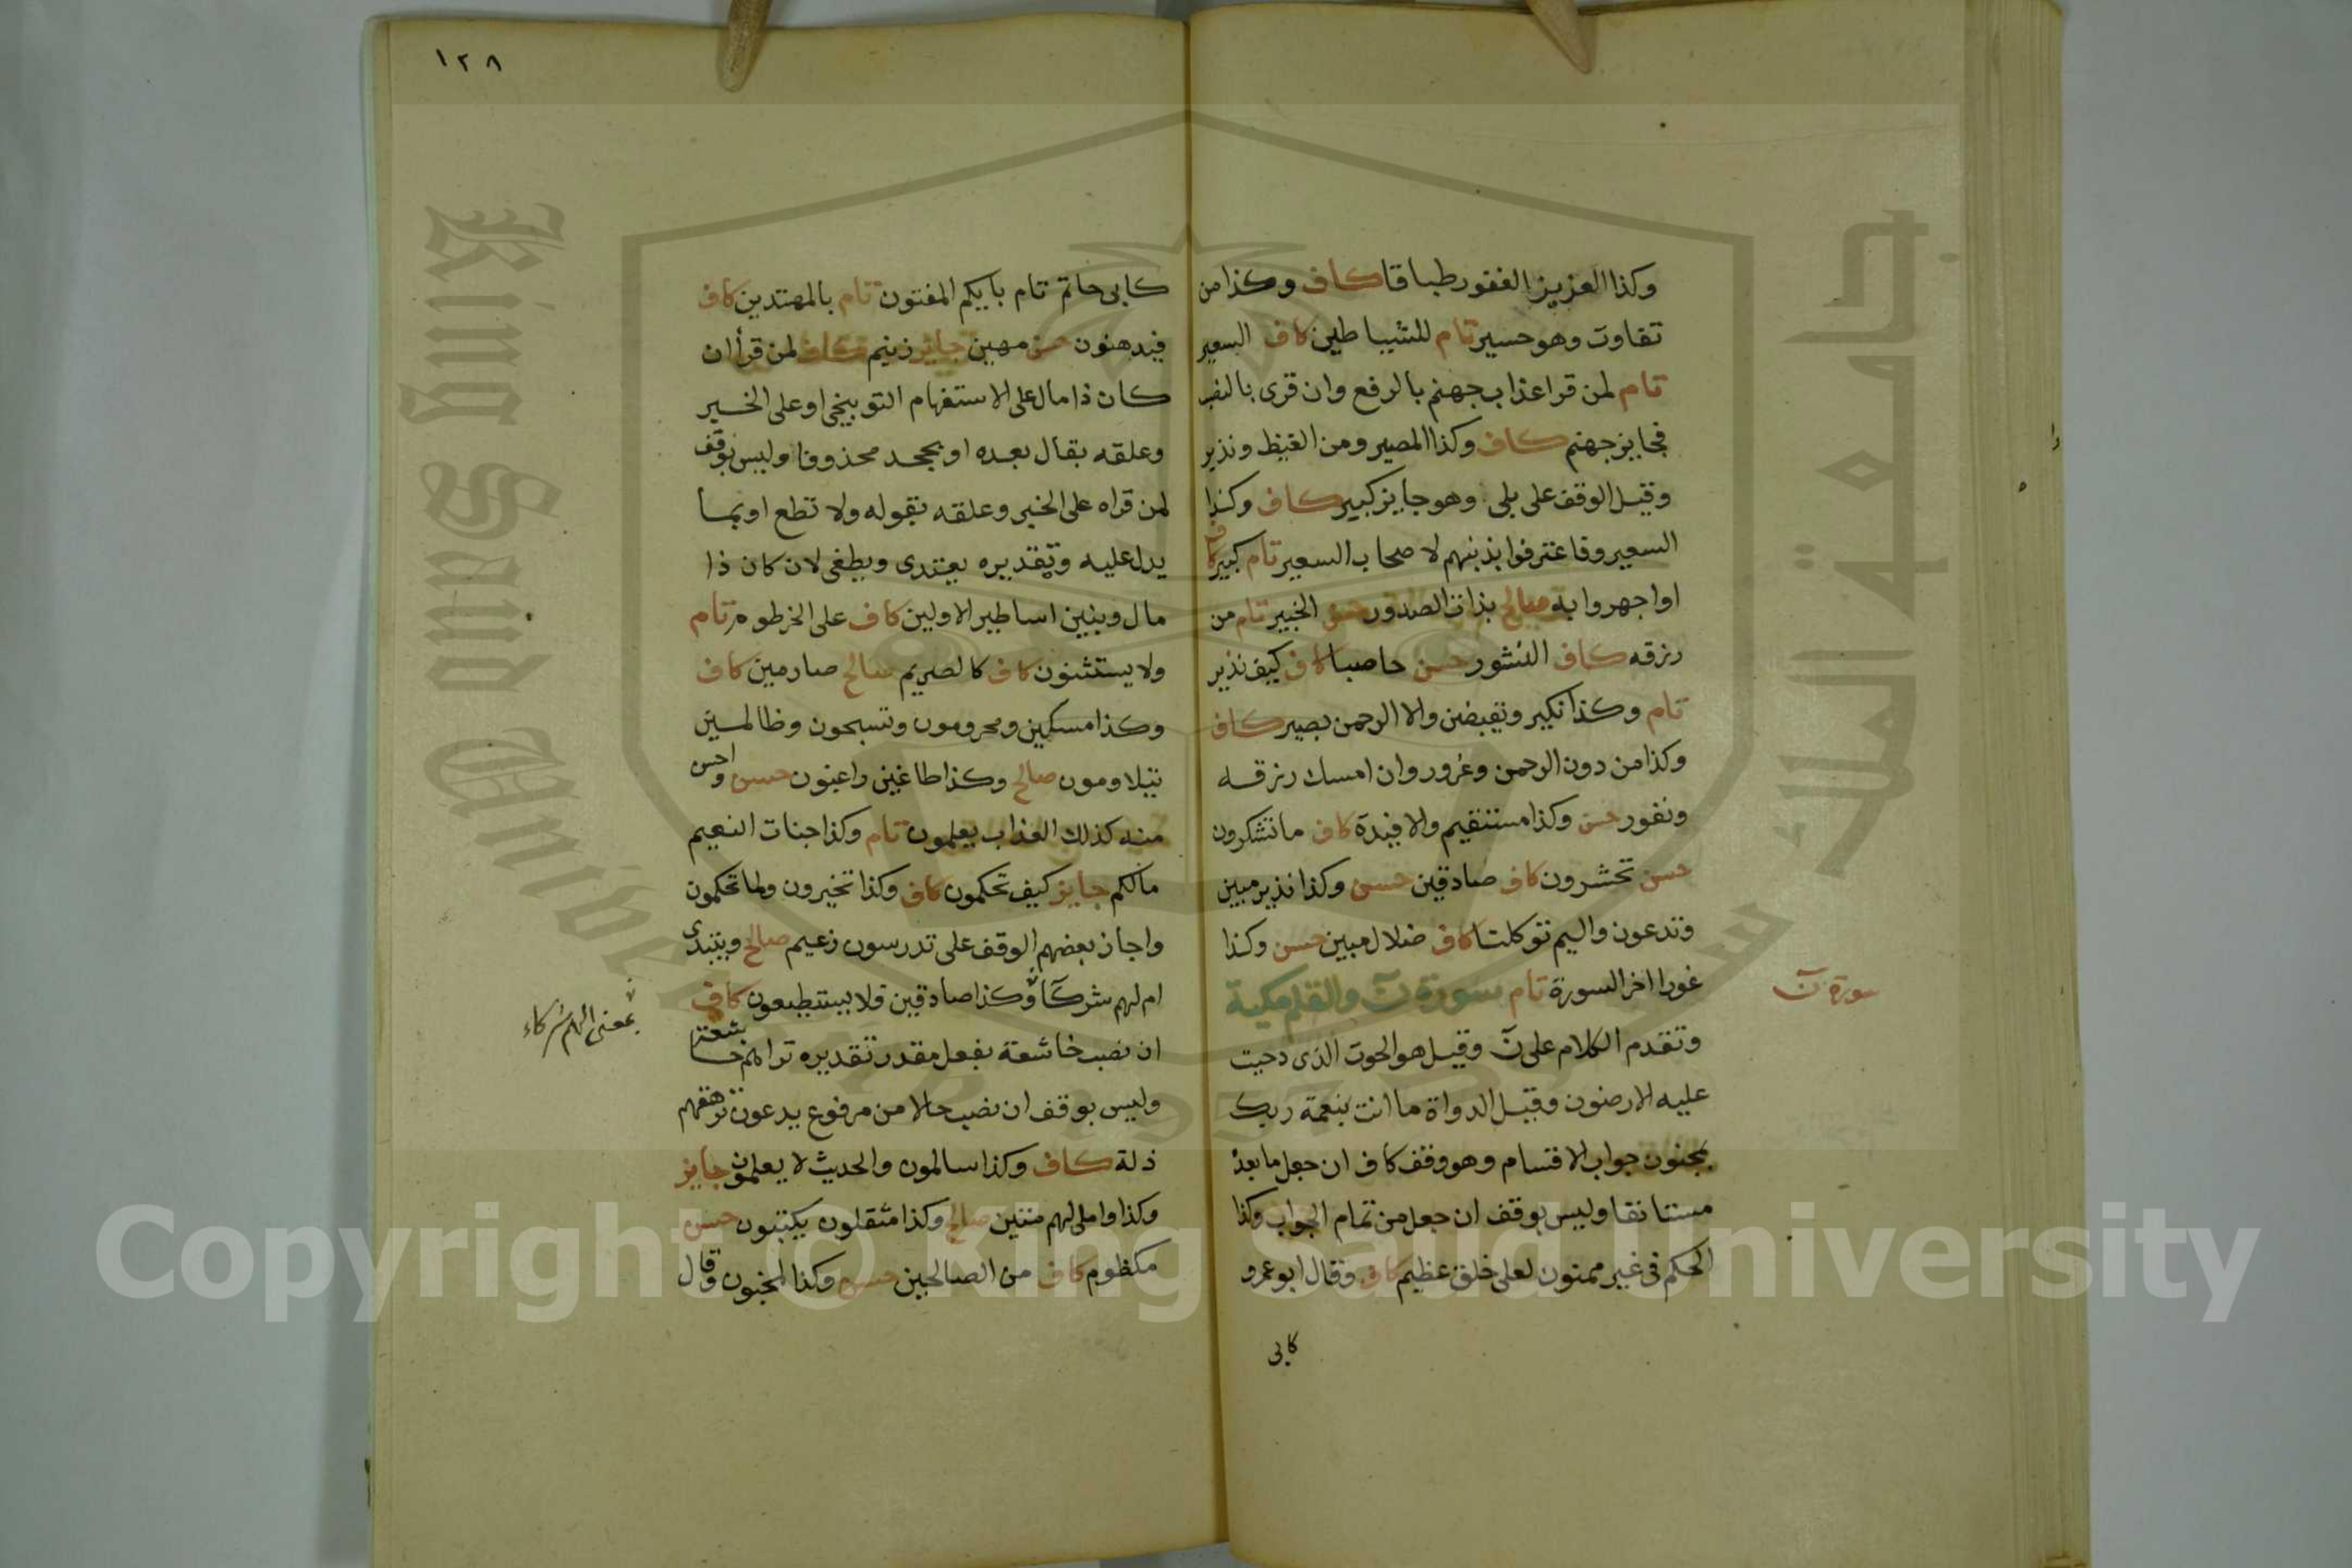 وكذا العزيز الغفور طباقا كاف وكذا من
تفاوت وهو حسير تام للشياطين كاف السعير
تام لمن قرا عذاب جهنم بالرفع وان قرى بالنصب
فجايز جهنم كاف وكذا المصير ومن الغيظ ونذير
وقيل الوقف على بلى وهو جايز كبير كاف وكذا
السعير وفاعترفوا بذنبهم لاصحاب السعير تام كبير كاف
اواجهروا به صالح بذات الصدور حسن الخبير تام من
رزقه كاف النشور حسن حاصبا كاف كيف نذير
تام وكذا نكير ويقبضن والا الرحمن بصير كاف
وكذا من دون الرحمن وغرور وان امسك رزقه
ونفور حسن وكذا مستقيم والافيدة كاف ما تشكرون
حسن تحشرون كاف صادقين حسن وكذا نذير مبين
وتدعون واليم توكلنا كاف ضلال مبين حسن وكذا
غورا اخر السورة تام سورة ن والقلم مكية
سورة ن
وتقدم الكلام على ن وقيل هو الحوت الذى دحيت
عليه الارضون وقيل الدواة ما انت بنعمة ربك
بمجنون جواب الاقسام وهو وقف كاف ان جعل ما بعده
مستانفا وليس بوقف ان جعل من تمام الجواب وكذا
الحكم فى غير ممنون لعلى خلق عظيم كاف وقال ابو عمرو
كابى
١٢٨
كابى حاتم تام بايكم المفتون تام بالمهتدين كاف
فيدهنون حسن مهين جايز زنيم كاف لمن قرأ ان
كان ذا مال على الاستفهام التوبيخى او على الخبر
وعلقه بقال بعده او بجحد محذوفا وليس بوقف
لمن قراه على الخبر وعلقه بقوله ولا تطع او بما
يدل عليه وتقديره يعتدى ويطغى لان كان ذا
مال وبنين اساطير الاولين كاف على الخرطوم تام
ولا يستثنون كاف كالصريم صالح صارمين كاف
وكذا مسكين ومحرومون وتسبحون وظالمين
يتلاومون صالح وكذا طاغين راغبون حسن واحسن
منه كذلك العذاب يعلمون تام وكذا جنات النعيم
مالكم جايز كيف تحكمون كاف وكذا تخيرون ولما تحكمون
واجاز بعضهم الوقف على تدرسون زعيم صالح ويبتدى
ام لهم شركآ وكذا صادقين فلا يستطيعون كاف
بمعنى الهم شركاء
ان نصب خاشعة بفعل مقدر تقديره تراهم خاشعة
وليس بوقف ان نصب حالا من مرفوع يدعون ترهقهم
ذلة كاف وكذا سالمون والحديث لا يعلمون جايز
وكذا واملى لهم متين صالح وكذا مثقلون يكتبون حسن
مكظوم كاف من الصالحين حسن وكذا لمجنون وقال
جامعة الملك سعود
King Saud University
1957
Copyright © King Saud University